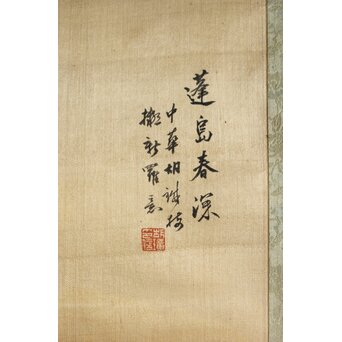 蓬島春深
中華胡
擬新羅意